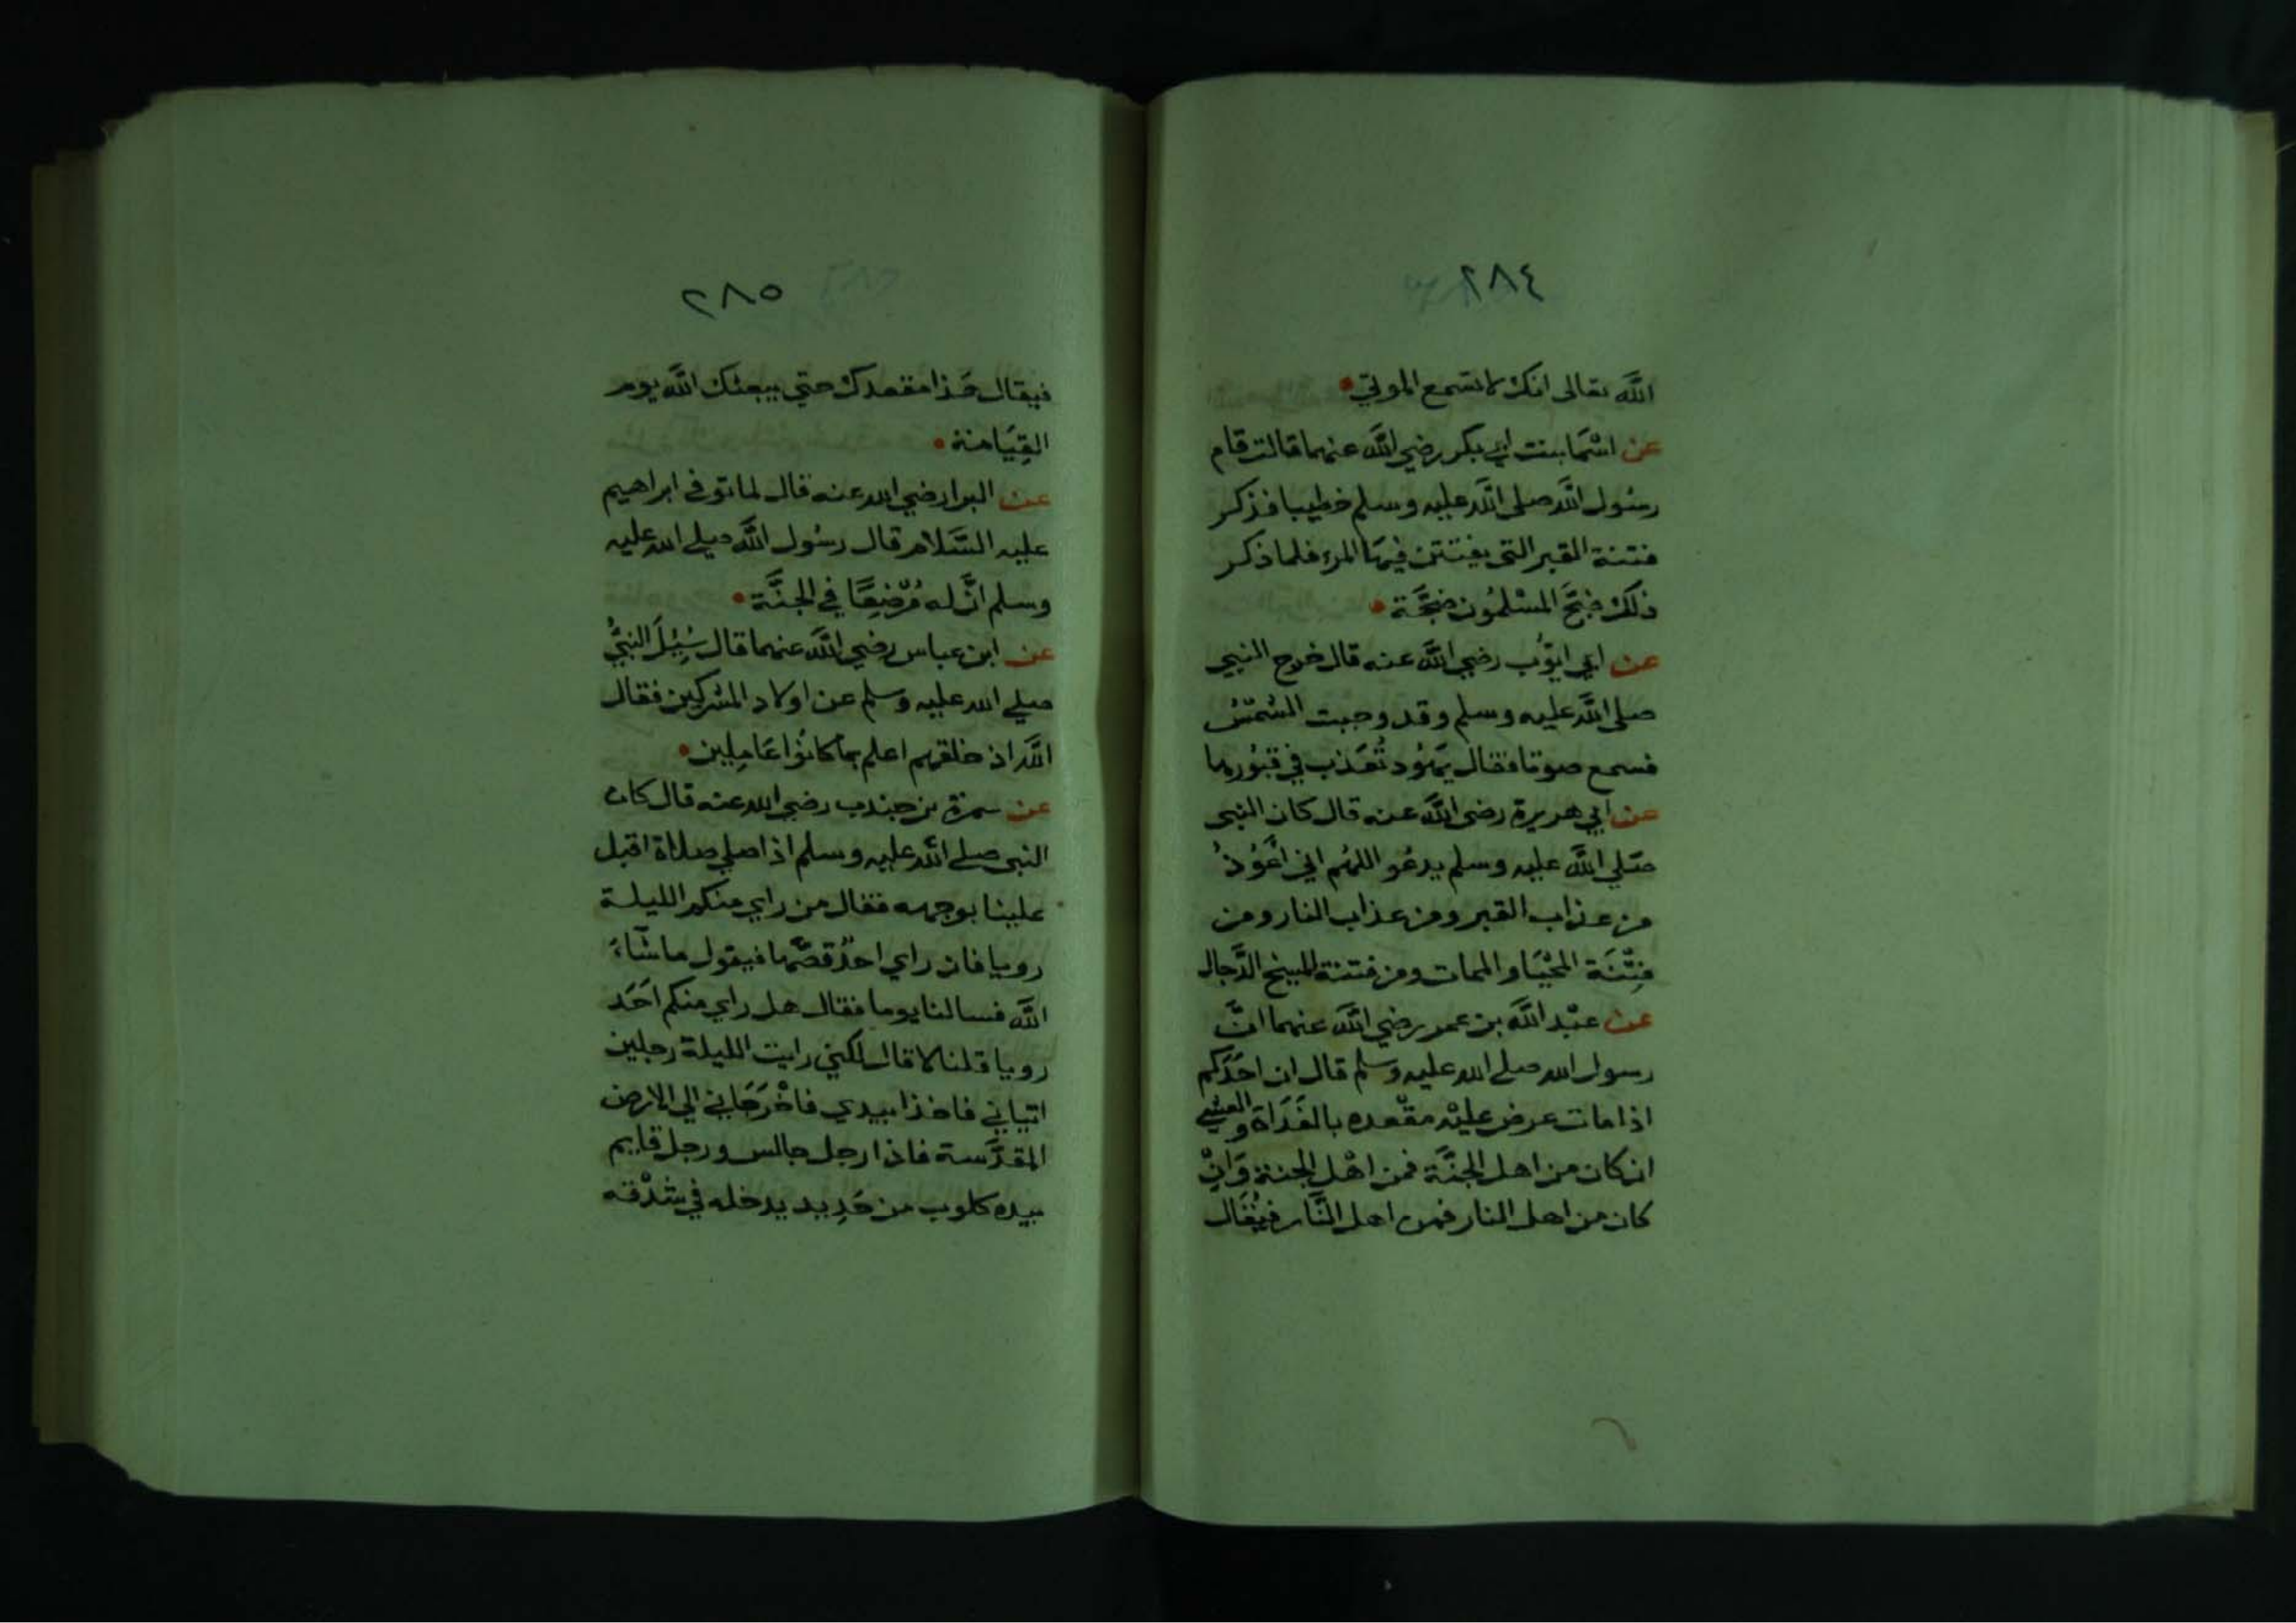 ٢٨٤
الله تعالى انك لا تسمع الموتي
عن اسْمَا بنت ابي بكر رضي الله عنهما قالت قام
رسُول الله صلى الله عليه وسلم خطيبا فذكر
فتنة القبر التي يفتتن فيهَا المرء فلما ذكر
ذلك ضَجَّ المسْلمُون ضجَّة
عن ابي ايوُّب رضي الله عنه قال خرج النبي
صلى الله عليه وسلم وقد وجبت الشمْسُ
فسمع صوتا فقال يَهُود تُعَذب في قبُورها
عن ابي هريرة رضي الله عنه قال كان النبي
صَلي الله عليه وسلم يدعُو اللهُم اني اَعُوْذُ
من عذاب القبر ومن عذاب النار ومن
فِتْنَة المحْيَا والممات ومن فتنة المسيح الدَّجال
عن عبْد الله بن عمر رضي الله عنهما انَّ
رسول الله صلي الله عليه وسلم قال ان احَدَكم
اذا مات عرض عليْه مقْعده بالغَدَاة والعشي
ان كان من اهل الجنَّة فمن اهْل الجنة وَانْ
كان من اهل النار فمن اهل النَّار فيُقَال
٢٨٥
فيقال هَذا مقعدك حتي يبعثك الله يوم
القِيَامة
عن البرا رضي الله عنه قال لما توفي ابراهيم
عليه السَّلام قال رسُول الله صلي الله عليه
وسلم انَّ له مُرْضِعًا في الجنَّة
عن ابن عباس رضي الله عنهما قال سُئِلَ النبيُّ
صلي الله عليه وسلم عن اولاد المشركين فقال
الله اذ خلقهم اعلم بما كانُوا عَامِلين
عن سمرة بن جندب رضي الله عنه قال كان
النبي صلي الله عليه وسلم اذا صلي صلاة اقبل
علينا بوجهه فقال من راي منكم الليلة
رويا فان راي احَدٌ قصَّها فيقول ما شَاءَ
الله فسالنا يوما فقال هل راي منكم اَحَد
رويا قلنا لا قال لكني رايت الليلة رجلين
اتياني فاخذا بيدي فاخْرَجَاني الي الارض
المقدَّسة فاذا رجل جالس ورجل قايم
بيده كلوب من حَدِيد يدخله في شدْقه